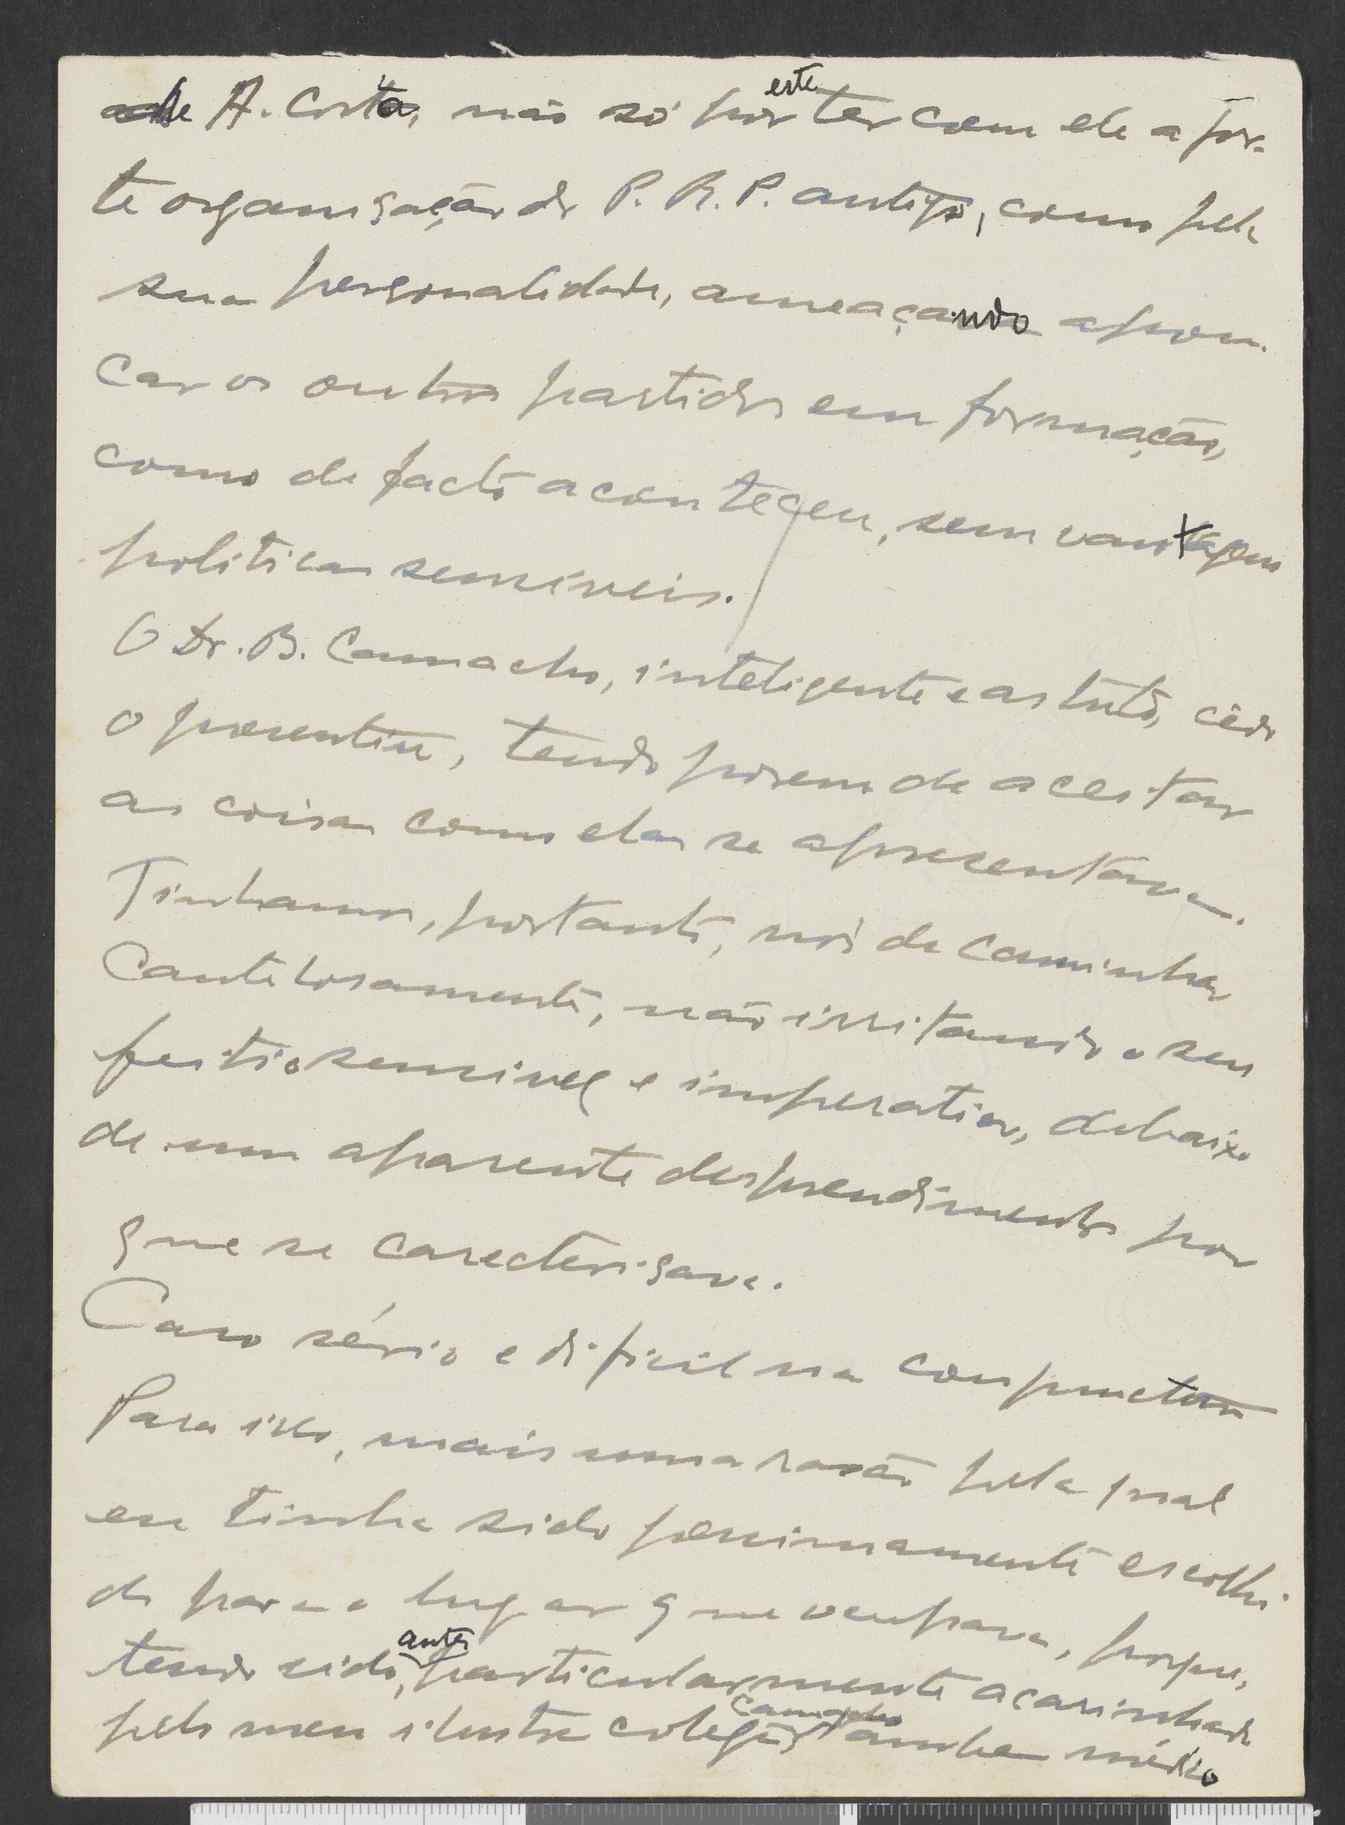 de A. Costa, não só por este ter com ele a for-
te organisação do P. R. P. antigo, como pela
sua personalidade, ameaçando afron-
car os outros partidos em formação,
como de facto aconteçeu, sem vantagens
politicas sensiveis.
O Dr. B. Camacho, inteligente e astuto, cêdo
o presentiu, tendo porem de aceitar
as coisas como elas se apresentavam.
Tinhamos, portanto, nós de caminhar
cautelosamente, não irritando o seu
feitio sensivel e imperativo, debaixo
de um aparente desprendimento por
que se caracterisava.
Caso sério e dificil na conjunctura
Para isso, mais uma rasão pela qual
eu tinha sido pessimamente escolhi-
do para o lugar que ocupava, porque,
tendo sido, antes particularmente acarinhado
pelo meu ilustre colega Camacho tambem médico